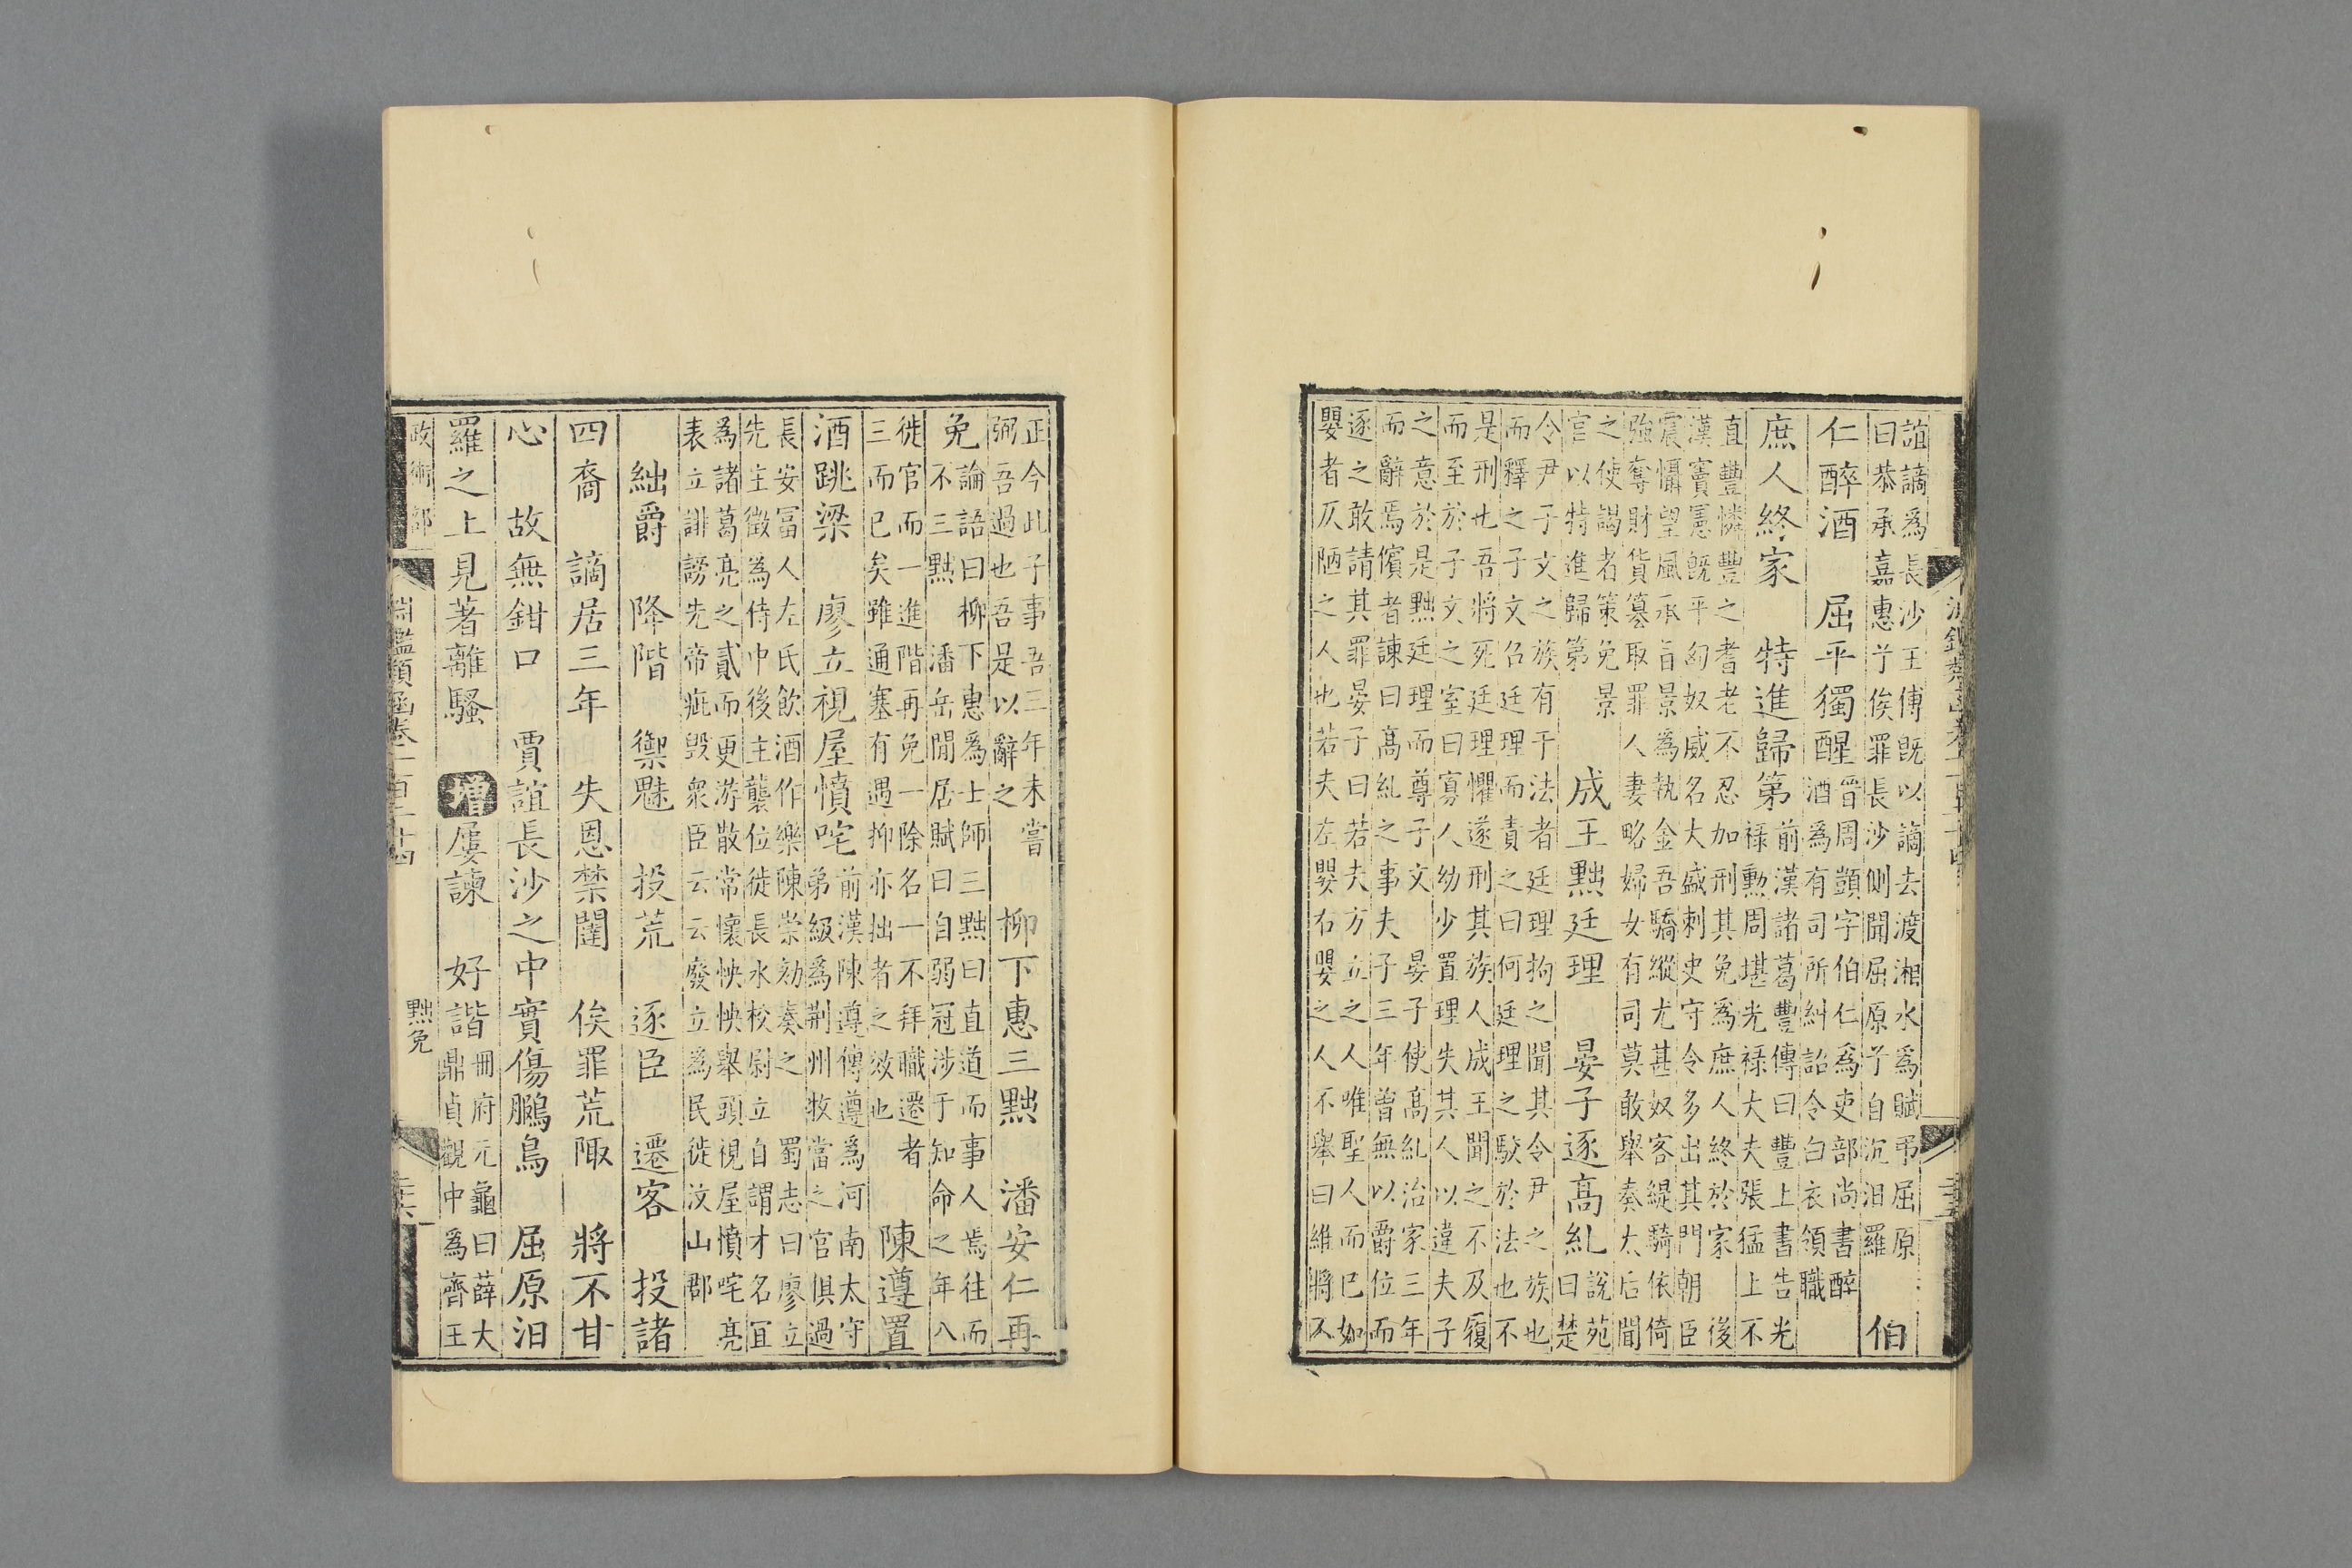 誼謫爲長沙王傅旣以謫去渡湘水爲賦弔屈原
曰恭承嘉惠兮俟罪長沙側聞屈原兮自沉汨羅
伯
仁醉酒
屈平獨醒
晉周顗字伯仁爲吏部尚書醉
酒爲有司所糾詔令白衣領職
庶人終家
特進歸第
前漢諸葛豐傳曰豐上書告光
祿勲周堪光祿大夫張猛上不
直豐憐豐之耆老不忍加刑其免爲庶人終於家後
漢竇憲旣平匈奴威名大盛刺史守令多出其門朝臣
震懾望風承旨景爲執金吾驕縱尤甚奴客緹騎依倚
強奪財貨篡取罪人妻略婦女有司莫敢舉奏太后聞
之使謁者策免景
官以特進歸第
成王黜廷理
晏子逐高糺
說苑
曰楚
令尹子文之族有干法者廷理拘之聞其令尹之族也
而釋之子文召廷理而責之曰何廷理之駁於法也不
是刑也吾將死廷理懼遂刑其族人成王聞之不及履
而至於子文之室曰寡人幼少置理失其人以違夫子
之意於是黜廷理而尊子文
晏子使高糺治家三年
而辭焉儐者諫曰高糺之事夫子三年曾無以爵位而
逐之敢請其罪晏子曰若夫方立之人唯聖人而已如
嬰者仄陋之人也若夫左嬰右嬰之人不舉曰維將不
正今此子事吾三年未嘗
弼吾過也吾是以辭之
柳下惠三黜
潘安仁再
免
論語曰柳下惠爲士師三黜曰直道而事人焉往而
不三黜
潘岳閒居賦曰自弱冠涉于知命之年八
徙官而一進階再免一除名一不拜職遷者
三而已矣雖通塞有遇抑亦拙者之效也
陳遵置
酒跳梁
廖立視屋憤咤
前漢陳遵傳遵爲河南太守
弟級爲荆州牧當之官俱過
長安富人左氏飲酒作樂陳崇劾奏之
蜀志曰廖立
先主徵為侍中後主襲位徙長水校尉立自謂才名宜
為諸葛亮之貳而更游散常懷怏怏舉頭視屋憤咤亮
表立誹謗先帝疵毀衆臣云云廢立為民徙汶山郡
絀爵
降階
禦魅
投荒
逐臣
遷客
投諸
四裔
謫居三年
失恩禁闥
俟罪荒陬
將不甘
心
故無鉗口
賈誼長沙之中實傷鵩鳥
屈原汨
羅之上見著離騷
增
屢諫
好諧
冊府元龜曰薛大
鼎貞觀中爲齊王
政術部
淵鑑類函卷一百二十四
黜免